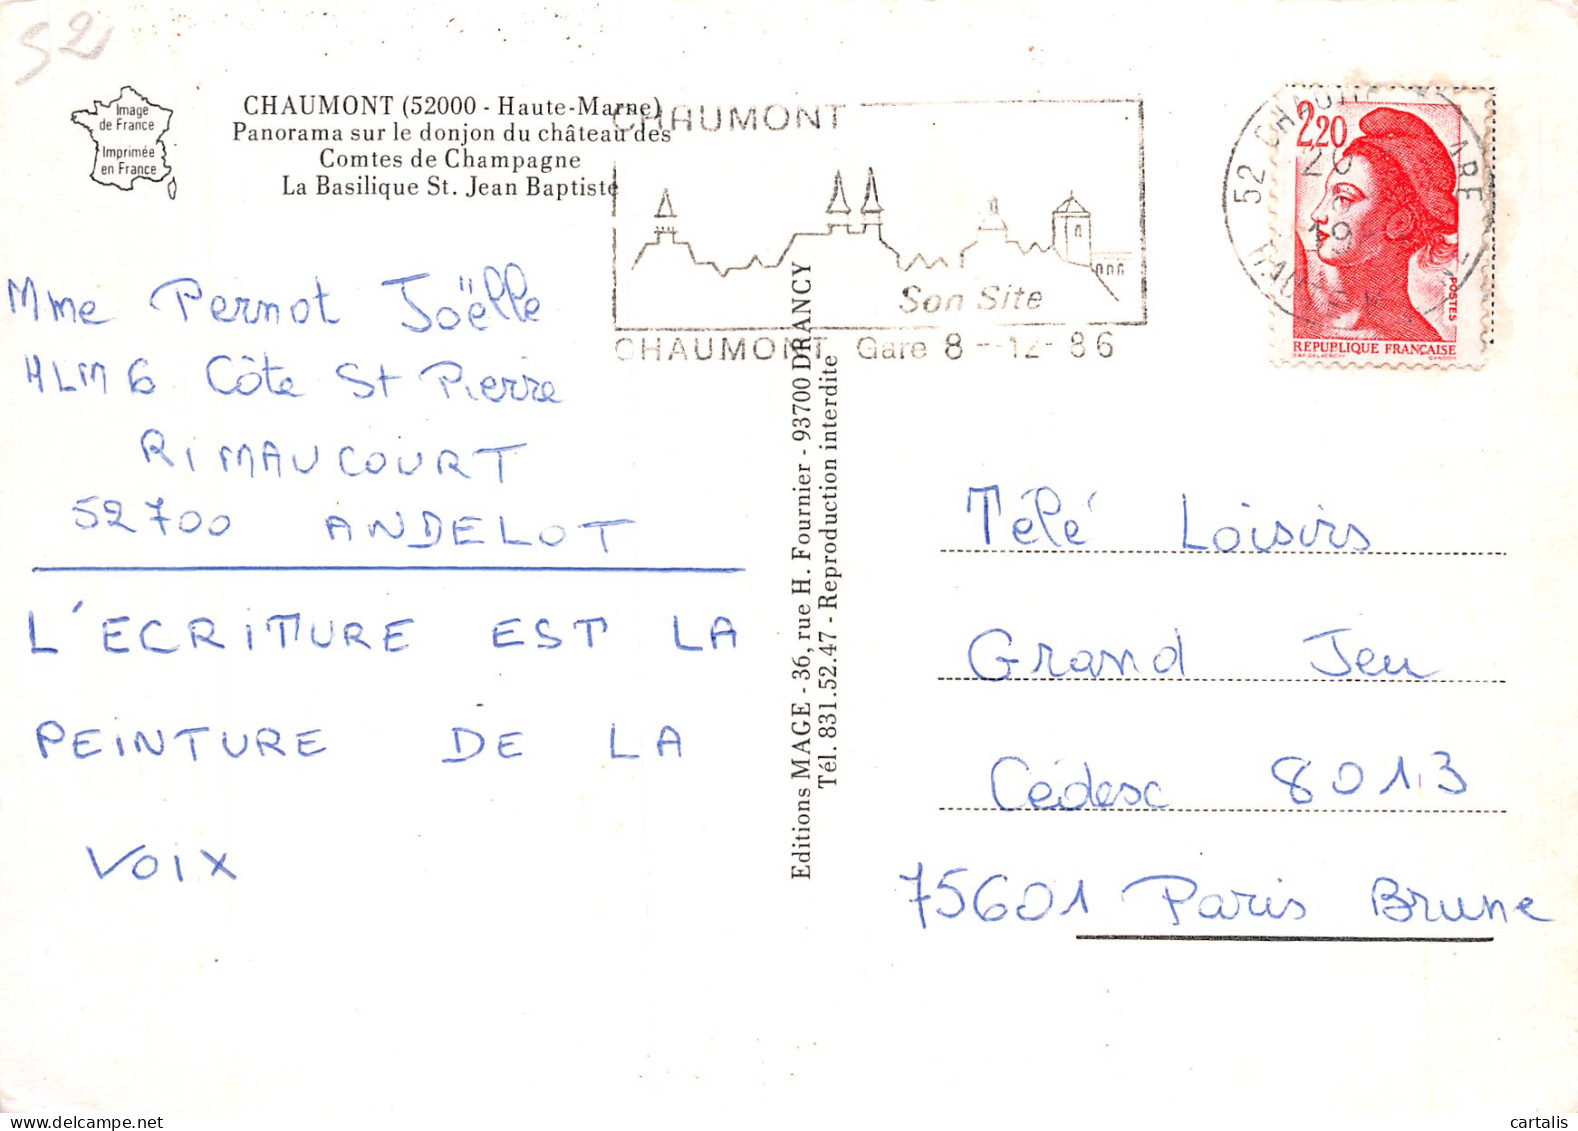 52
Image
de France
Imprimée
en France
CHAUMONT (52000 - Haute-Marne)
Panorama sur le donjon du château des
Comtes de Champagne
La Basilique St. Jean Baptiste
CHAUMONT
Son Site
CHAUMONT Gare 8-12-86
2,20
POSTES
REPUBLIQUE FRANÇAISE
52 CHAUMONT GARE
Mme Pernot Joëlle
HLM 6 Côte St Pierre
RIMAUCOURT
52700 ANDELOT
L'ECRITURE EST LA
PEINTURE DE LA
VOIX
Editions MAGE - 36, rue H. Fournier - 93700 DRANCY
Tél. 831.52.47 - Reproduction interdite
Télé Loisirs
Grand Jeu
Cédesc 8013
75601 Paris Brune
cartalis